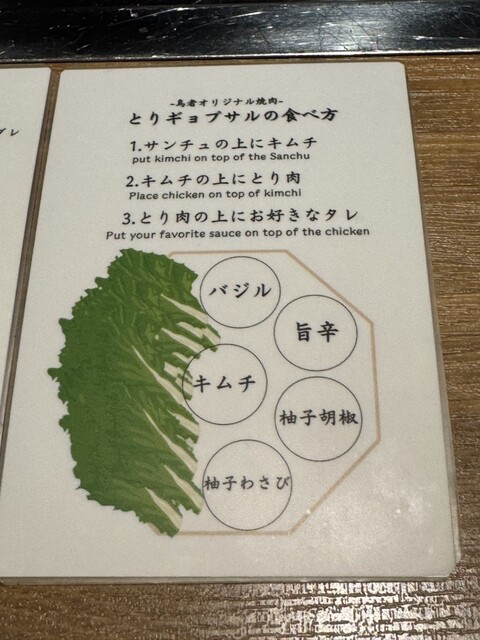 -鳥者オリジナル焼肉-
とりギョプサルの食べ方
1.サンチュの上にキムチ
put kimchi on top of the Sanchu
2.キムチの上にとり肉
Place chicken on top of kimchi
3.とり肉の上にお好きなタレ
Put your favorite sauce on top of the chicken
バジル
旨辛
キムチ
柚子胡椒
柚子わさび